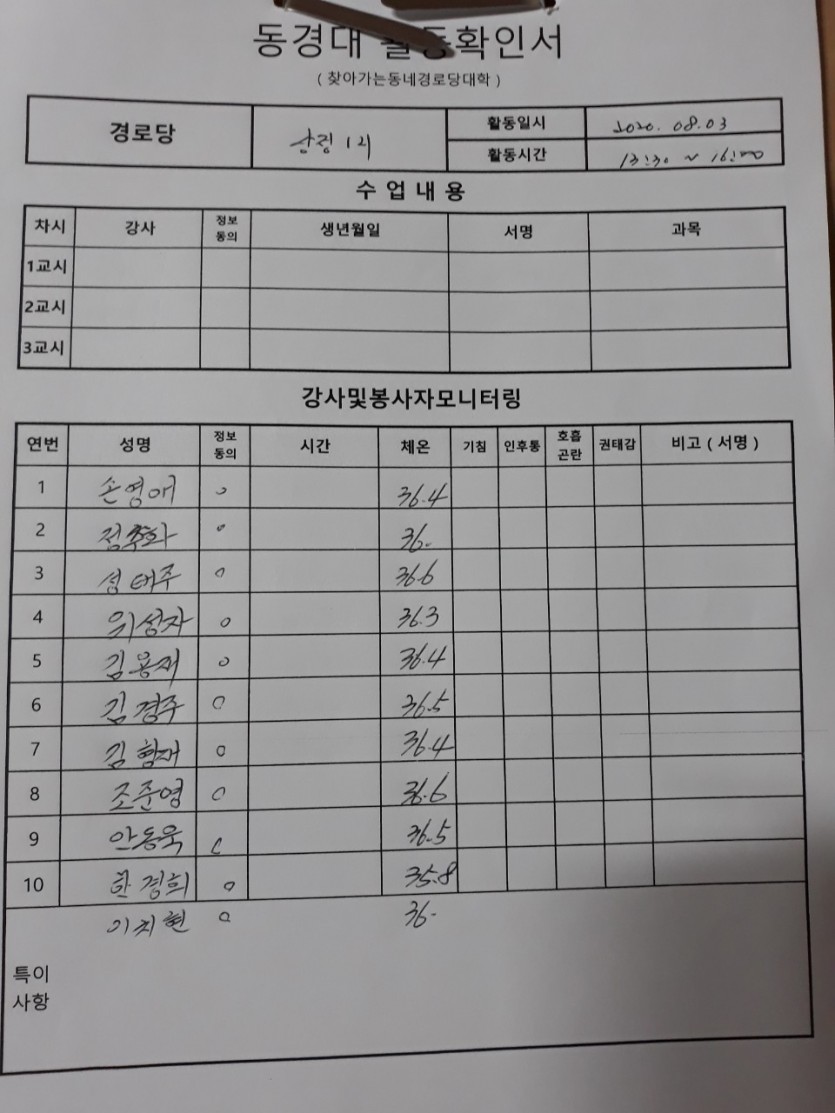 동경대 활동확인서
( 찾아가는동네경로당대학 )
경로당 1리 활동일시 2020. 08.03
활동시간 13:30 ~ 16:00
수 업 내 용
차시 강사 정보동의 생년월일 서명 과목
1교시
2교시
3교시
강사및봉사자모니터링
연번 성명 정보동의 시간 체온 기침 인후통 호흡곤란 권태감 비고 ( 서명 )
1 손영애 o 36.4
2 o 36.
3 성태주 o 36.6
4 위성자 o 36.3
5 김용재 o 36.4
6 김경주 o 36.5
7 김형재 o 36.4
8 조준영 o 36.6
9 안동욱 o 36.5
10 한경희 o 35.8
이지현 o 36-
특이
사항